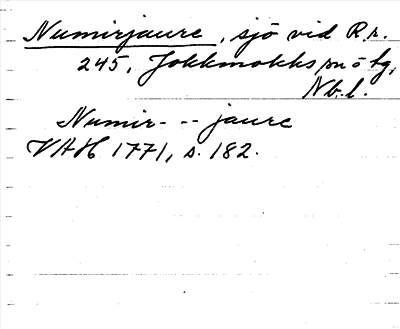 Numirjaure, sjö vid R.r.
245, Jokkmokks sn o tg,
Nb.l.
Numir- -- jaure
VAH 1771, s. 182.